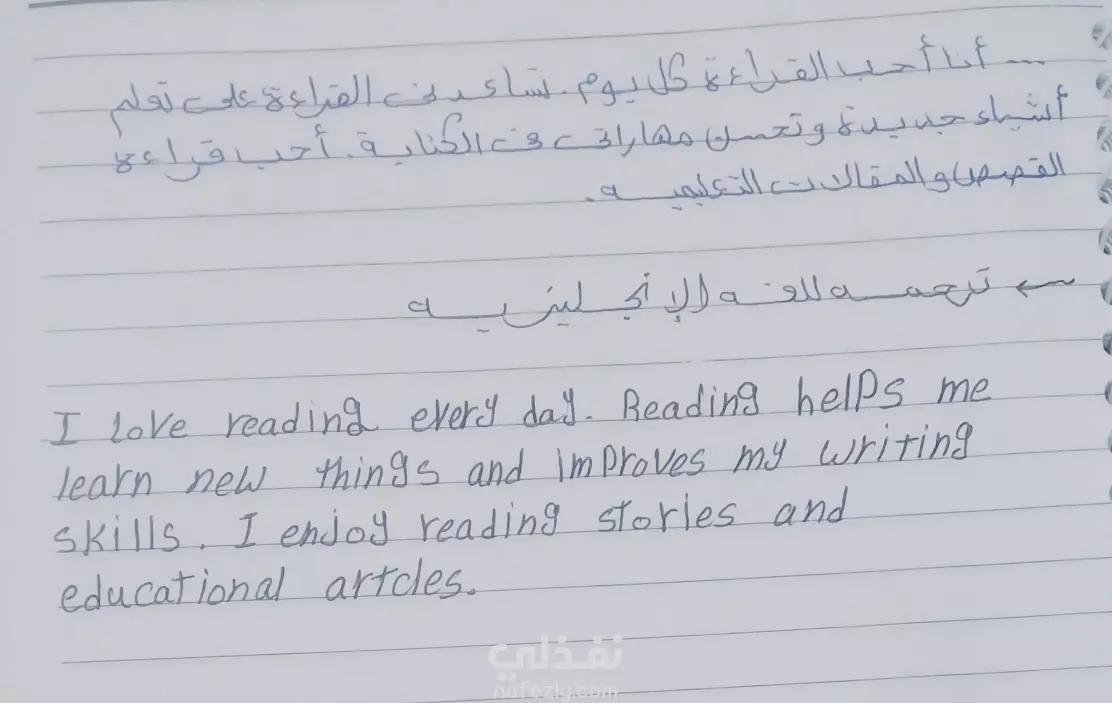 ... أنا أحب القراءة كل يوم. تساعدني القراءة على تعلم
أشياء جديدة وتحسن مهاراتي في الكتابة. أحب قراءة
القصص والمقالات التعليميه.
← ترجمه للغه الإنجليزيه
I love reading every day. Reading helps me
learn new things and improves my writing
skills. I enjoy reading stories and
educational artcles.
نفذلي
nafezly.com